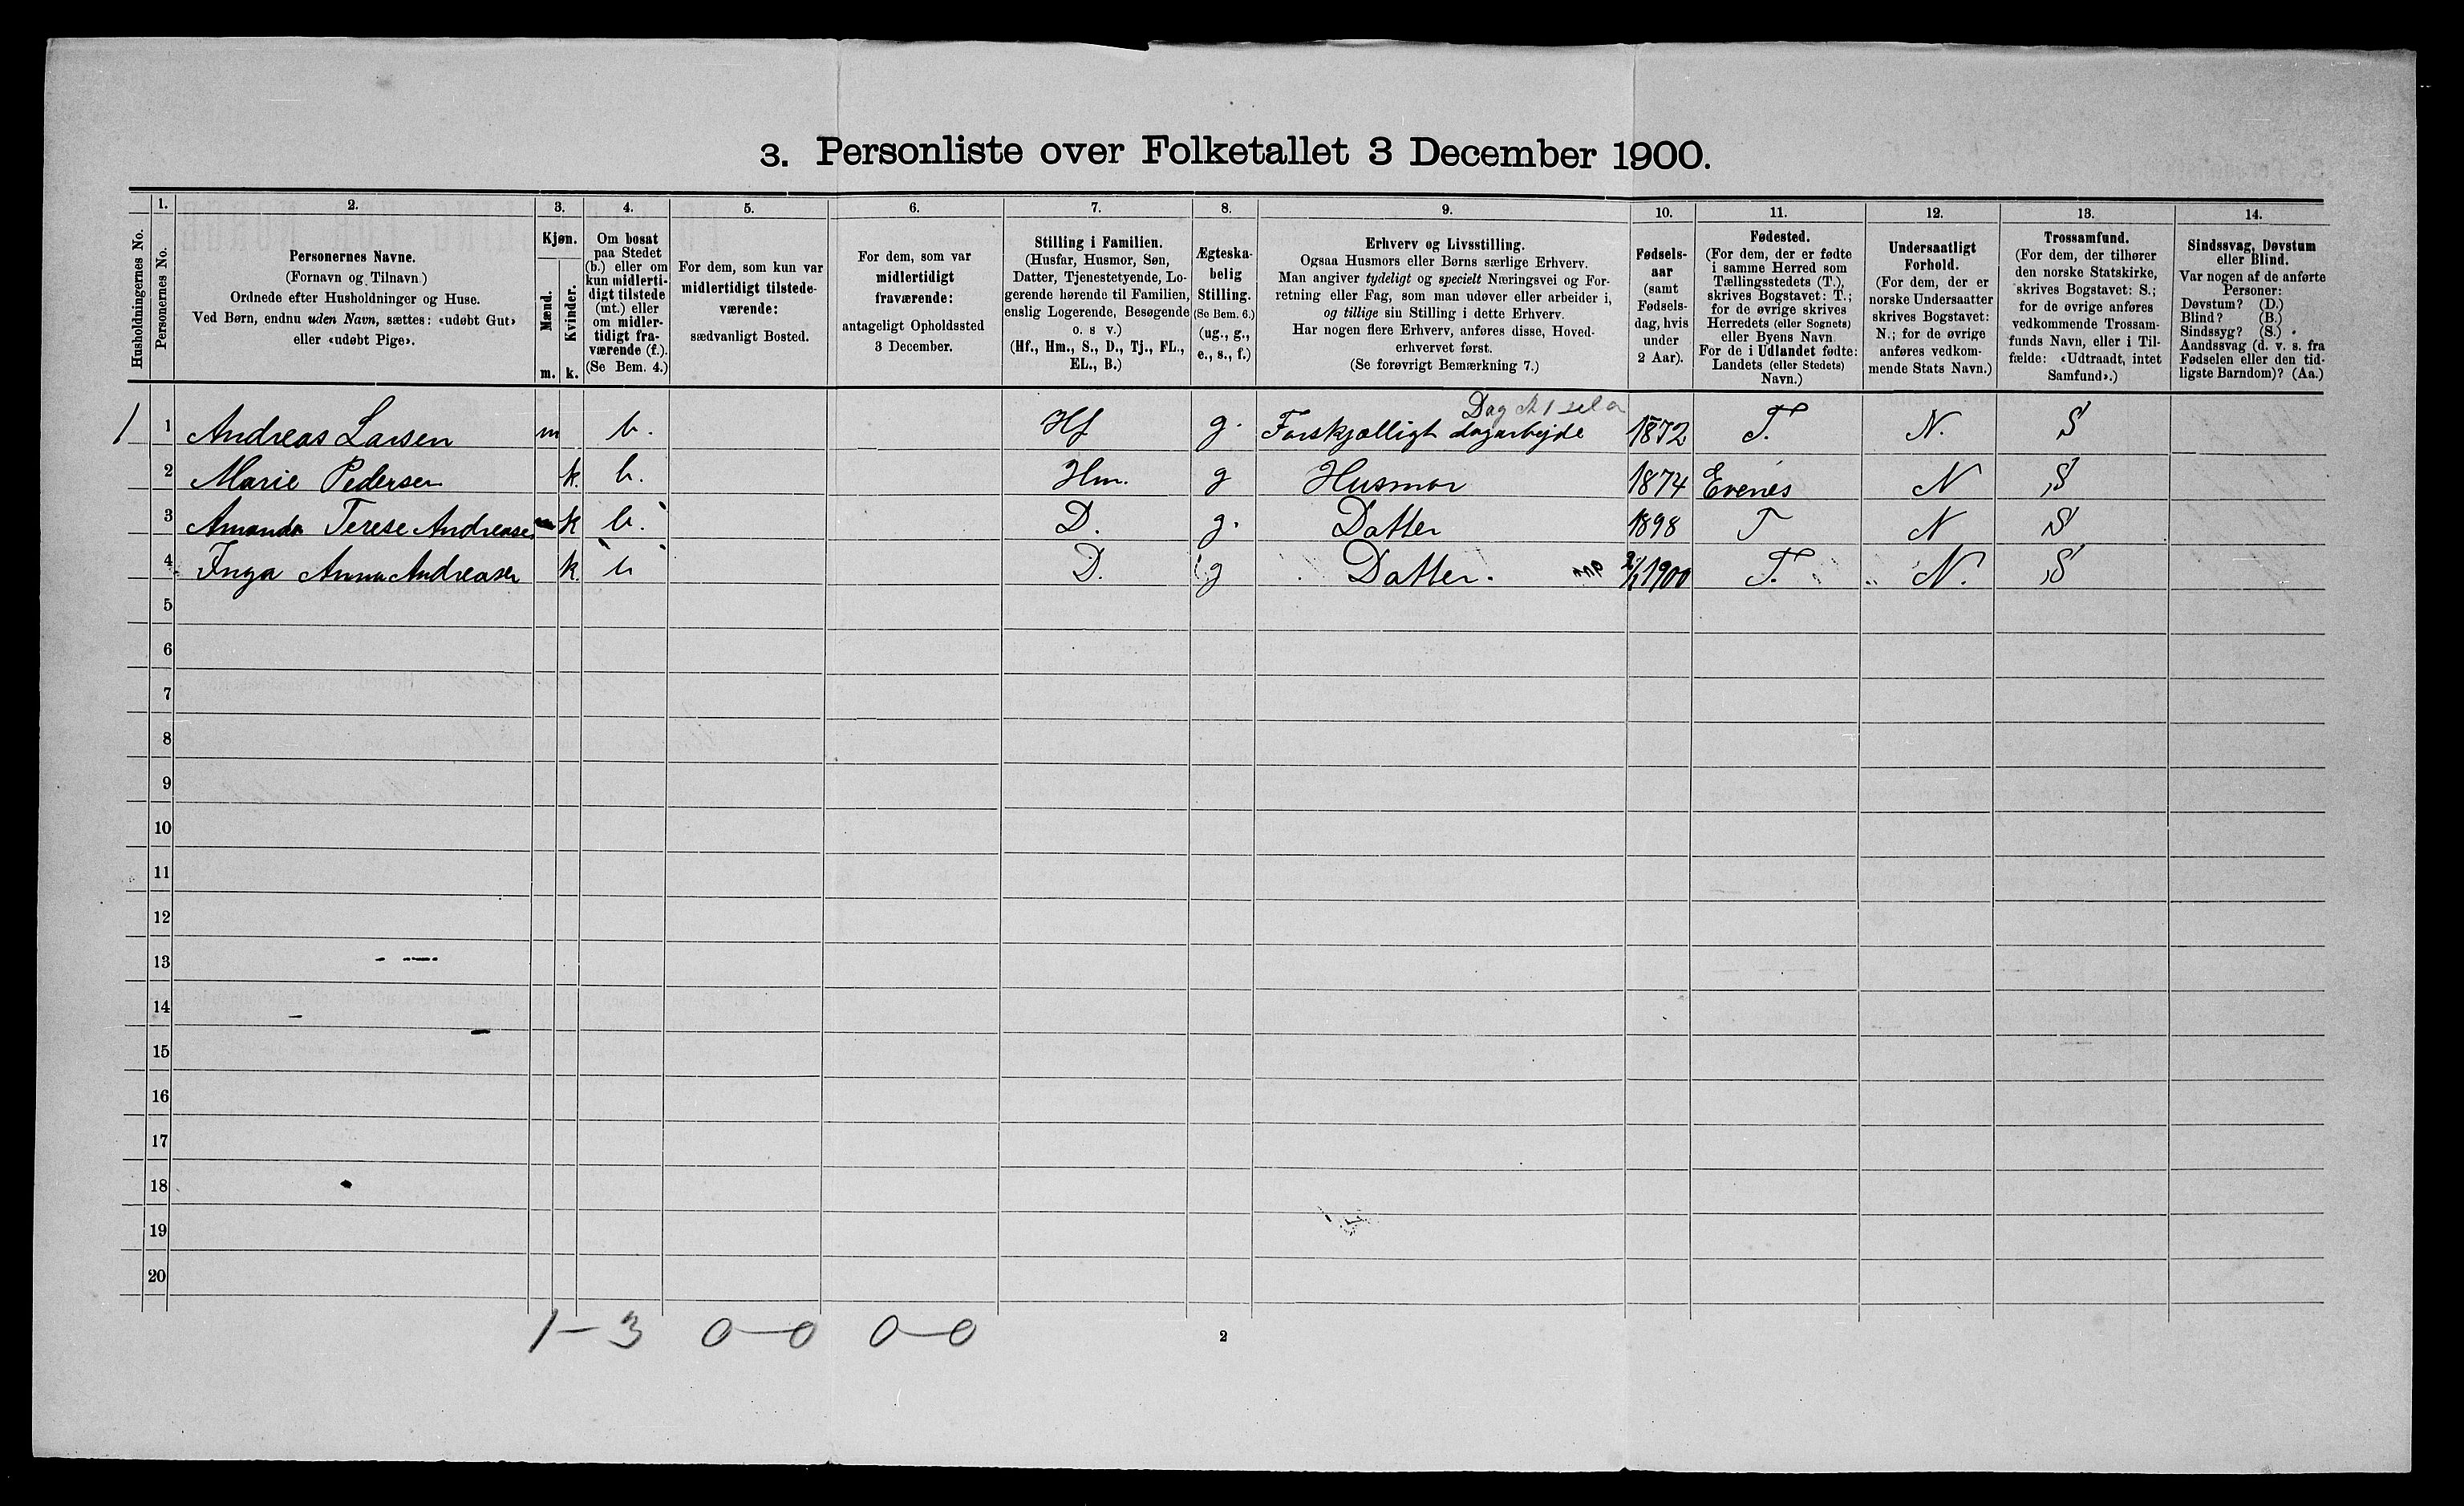 3. Personliste over Folketallet 3 December 1900.
Husholdningernes No.
1.
Personernes No.
2.
Personernes Navne.
(Fornavn og Tilnavn)
Ordnede efter Husholdninger og Huse.
Ved Børn, endnu uden Navn, sættes: «udøbt Gut»
eller «udøbt Pige».
3.
Kjøn.
Mænd.
Kvinder.
m. k.
4.
Om bosat
paa Stedet
(b.) eller om
kun midlerti-
digt tilstede
(mt.) eller
om midler-
tidigt fra-
værende (f.).
(Se Bem. 4.)
5.
For dem, som kun var
midlertidigt tilstede-
værende:
sædvanligt Bosted.
6.
For dem, som var
midlertidigt
fraværende:
antageligt Opholdssted
3 December.
7.
Stilling i Familien.
(Husfar, Husmor, Søn,
Datter, Tjenestetyende, Lo-
gerende hørende til Familien,
enslig Logerende, Besøgende
o. s v.)
(Hf., Hm., S., D., Tj., FL.,
EL., B.)
8.
Ægteska-
belig
Stilling.
(Se Bem. 6.)
(ug., g.,
e., s., f.)
9.
Erhverv og Livsstilling.
Ogsaa Husmors eller Børns særlige Erhverv.
Man angiver tydeligt og specielt Næringsvei og For-
retning eller Fag, som man udøver eller arbeider i,
og tillige sin Stilling i dette Erhverv.
Har nogen flere Erhverv, anføres disse, Hoved-
erhvervet først.
(Se forøvrigt Bemærkning 7.)
10.
Fødsels-
aar
(samt
Fødsels-
dag, hvis
under
2 Aar).
11.
Fødested.
(For dem, der er fødte
i samme Herred som
Tællingsstedets (T.),
skrives Bogstavet: T.;
for de øvrige skrives
Herredets (eller Sognets)
eller Byens Navn.
For de i Udlandet fødte:
Landets (eller Stedets)
Navn.)
12.
Undersaatligt
Forhold.
(For dem, der er
norske Undersaatter
skrives Bogstavet:
N.; for de øvrige
anføres vedkom-
mende Stats Navn.)
13.
Trossamfund.
(For dem, der tilhører
den norske Statskirke,
skrives Bogstavet: S.;
for de øvrige anføres
vedkommende Trossam-
funds Navn, eller i Til-
fælde: «Udtraadt, intet
Samfund».)
14.
Sindssvag, Døvstum
eller Blind.
Var nogen af de anførte
Personer:
Døvstum? (D.)
Blind? (B.)
Sindssyg? (S.)
Aandssvag (d. v. s. fra
Fødselen eller den tid-
ligste Barndom)? (Aa.)
1 1 Andreas Larsen m b. Hf g. Forskjælligt dagarbejde 1872 T. N. S
2 Marie Pedersen k. b. Hm. g Husmor 1874 Evenes N S
3 Amanda Terese Andreasen k b. D. g. Datter 1898 T N S
4 Inga Anna Andreasen k. b D. g Datter. 1900 T. N. S
5
6
7
8
9
10
11
12
13
14
15
16
17
18
19
20
1-3 0-0 0-0
2